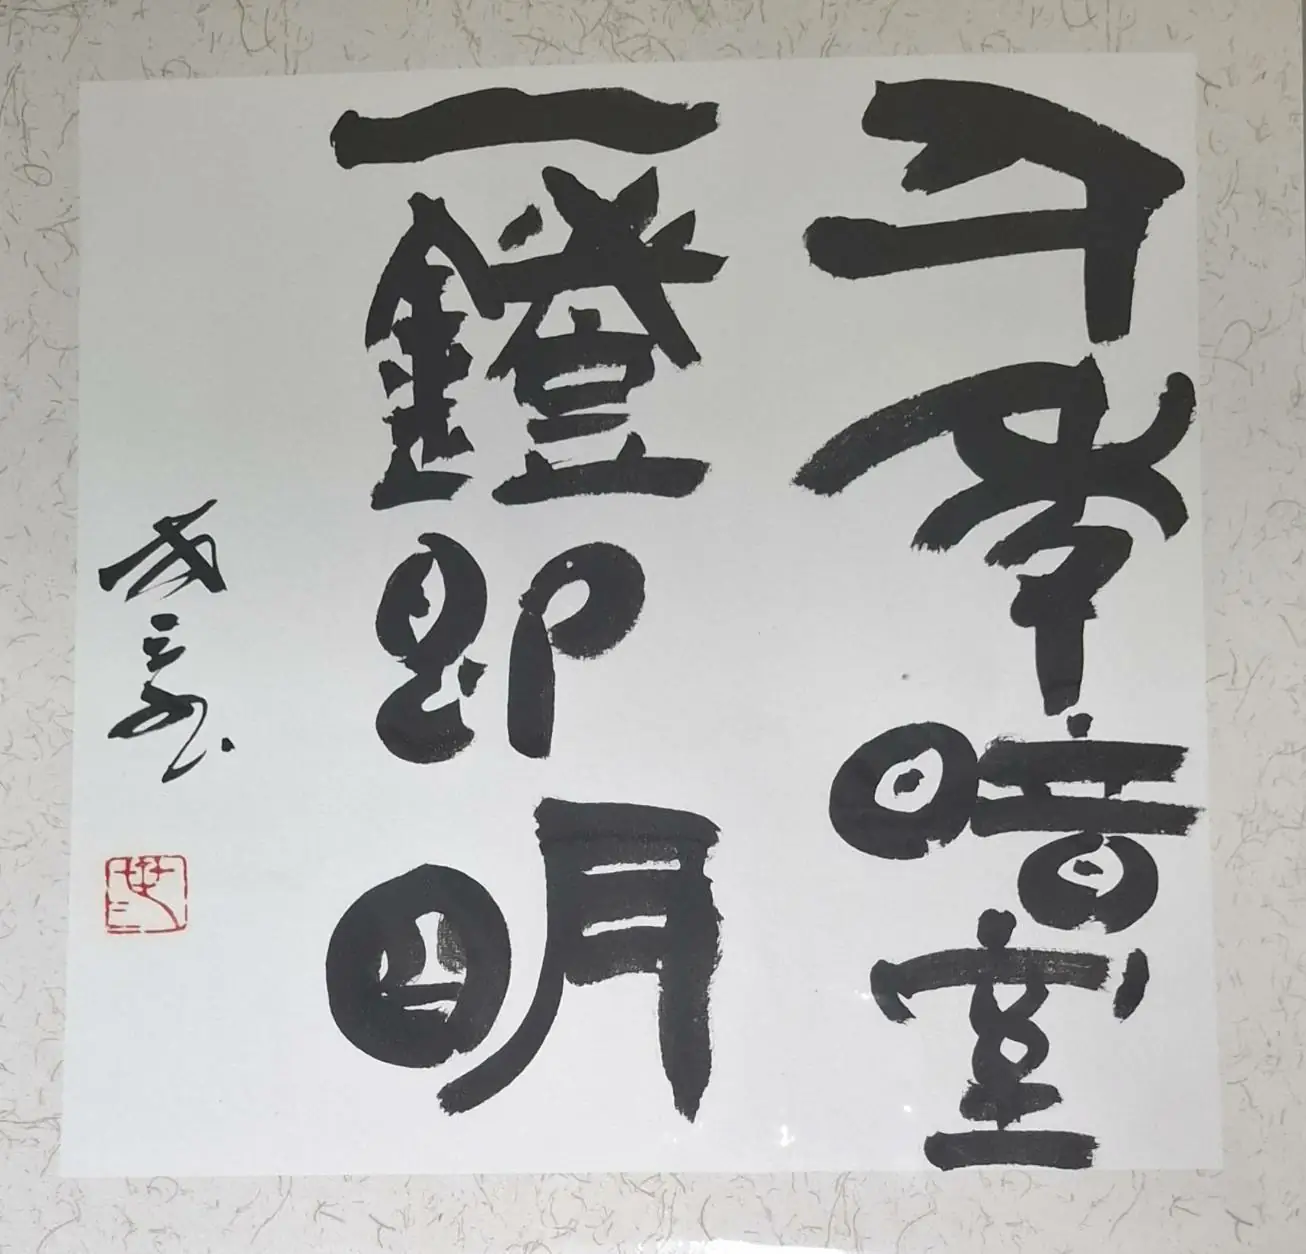 千年暗室
一鐙即明